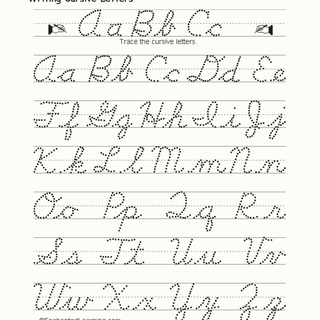 Writing Cursive Letters
Aa Bb Cc
Trace the cursive letters.
Aa Bb Cc Dd Ee
Ff Gg Hh Ii Jj
Kk Ll Mm Nn
Oo Pp Qq Rr
Ss Tt Uu Vv
Ww Xx Yy Zz
©EnchantedLearning.com